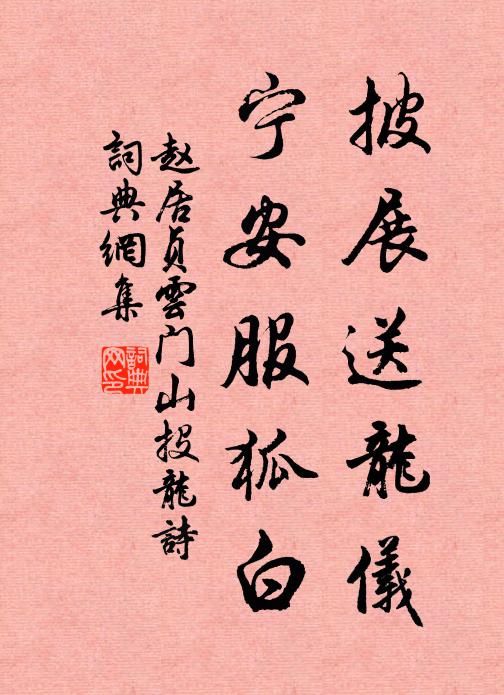 披展送龍儀
宁安服狐白
赵居貞雲门山投龍詩
詞典網集
詞典網印